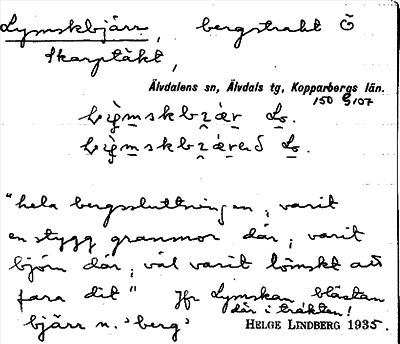 Lymskbjärr, bergstrakt Ö
Skarptäkt,
Älvdalens sn, Älvdals tg, Kopparbergs län.
150 G 107
"hela bergssluttningen, varit
en stygg granmor där, varit
björn där, väl varit lömskt att
fara dit" Jfr Lymskan blåstan
där i trakten!
bjärr n. 'berg'
HELGE LINDBERG 1935.